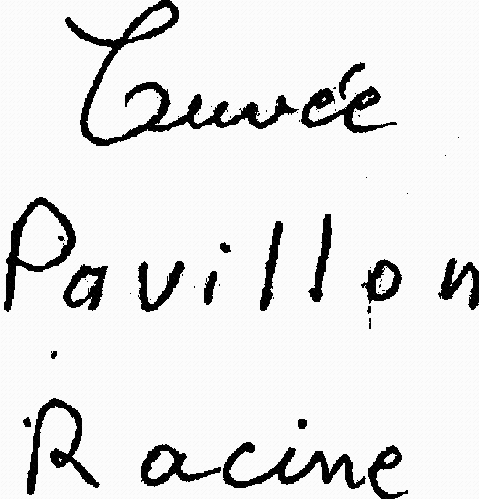 Cuvée
Pavillon
Racine